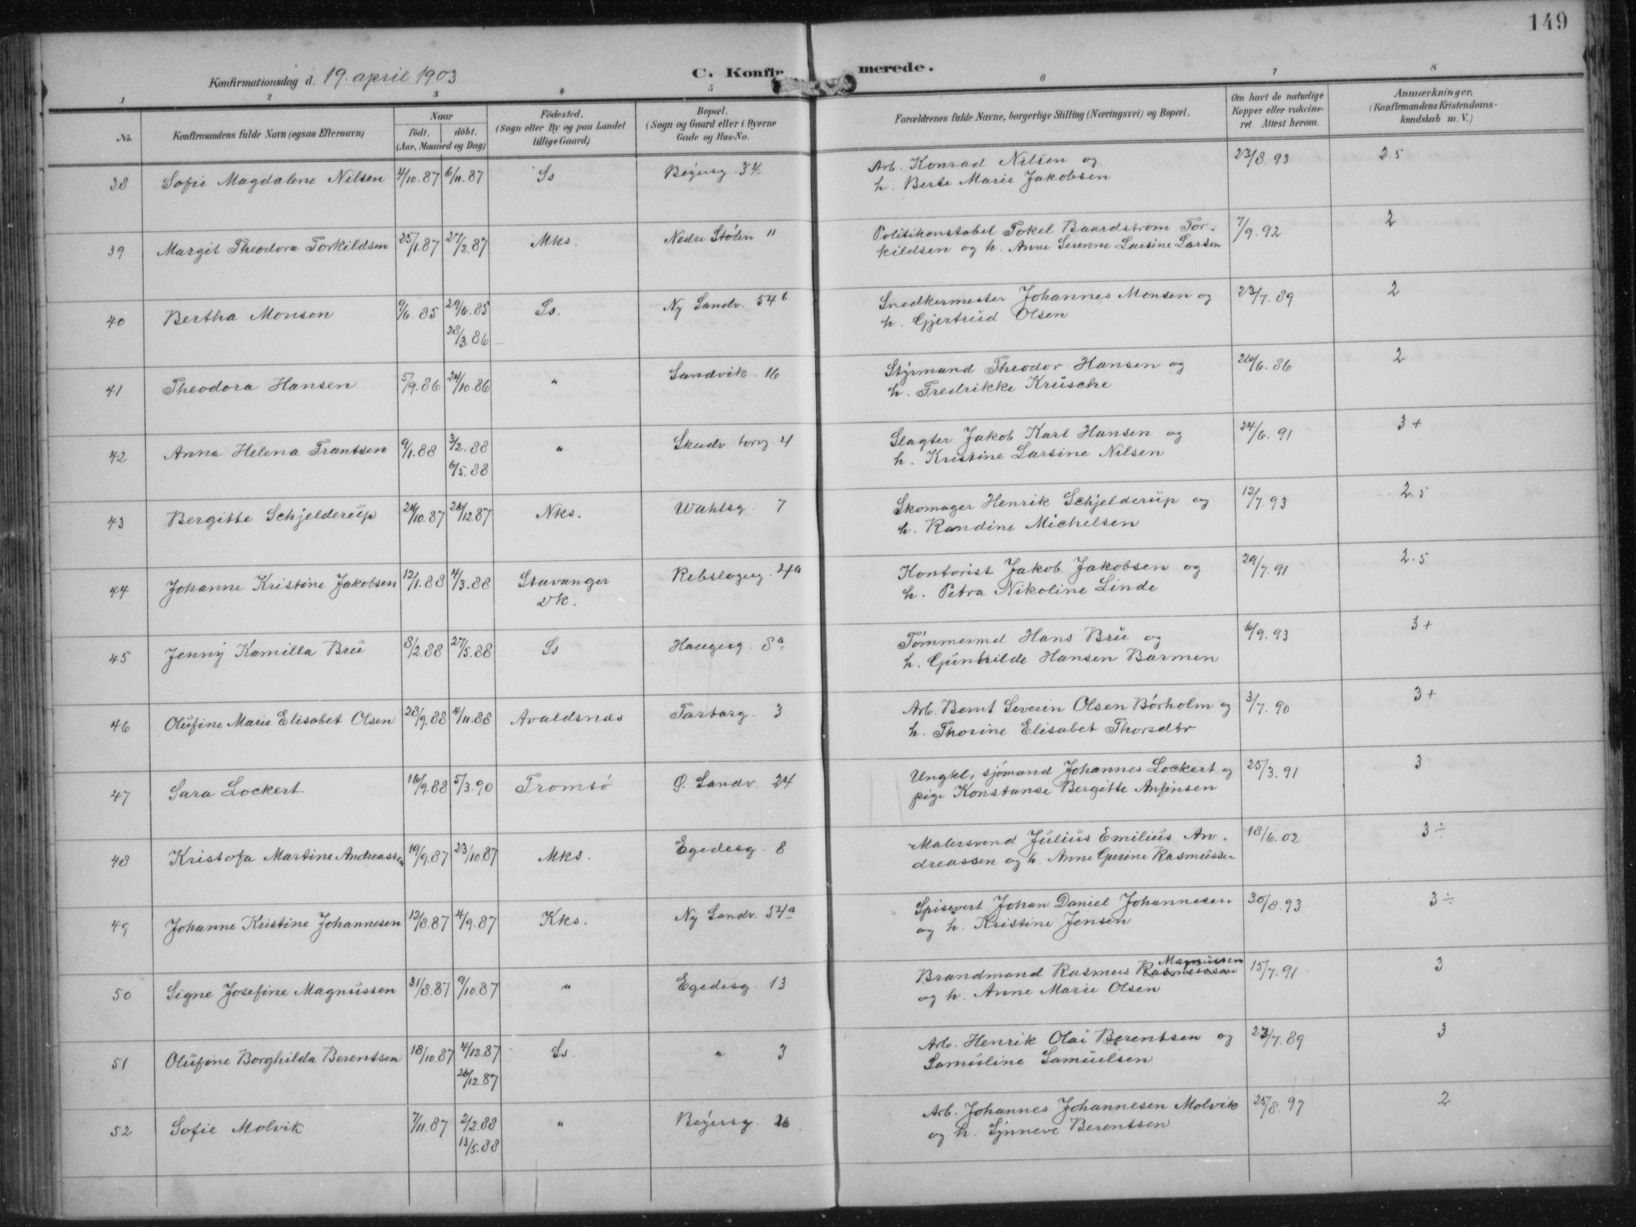 149
Konfirmationsdag d. 19. april 1903
C. Konfirmerede.
1 2 3 4 5 6 7 8
No. Konfirmandens fulde Navn (ogsaa Efternavn) Naar født. døbt. (Aar, Maaned og Dag) Fødested. (Sogn eller By og paa Landet tillige Gaard) Bopæl. (Sogn og Gaard eller i Byerne Gade og Hus-No. Forældrenes fulde Navne, borgerlige Stilling (Næringsvei) og Bopæl. Om havt de naturlige Kopper eller vaccineret. Attest herom. Anmærkninger. (Konfirmandens Kristendomskundskab m. V.)
38 Sofie Magdalene Nilsen 4/10.87 6/11.87 Ss Bøjersg 34 Arb. Konrad Nilsen og 23/8.93 2.5
h. Berte Marie Jakobsen
39 Margit Theodora Torkildsen 25/1.87 27/2.87 Mks. Nedre Stølen 11 Politikonstabel Tokel Baardstrøm Tor- 7/9.92 2
kildsen og h. Anne Serenne Larsine Larsen
40 Bertha Monsen 9/6.85 29/6.85 Ss. Ny Sandv. 54 b Snedkermester Johannes Monsen og 23/7.89 2
28/3.86 h. Gjertrud Olsen
41 Theodora Hansen 5/9.86 24/10.86 " Sandvik 16 Styrmand Theodor Hansen og 26/6.86 2
h. Fredrikke Krüsche
42 Anna Helena Frantsen 9/1.88 3/2.88 " Skudv torg. 4 Slagter Jakob Karl Hansen og 24/6.91 3+
6/5.88 h. Kristine Larsine Nilsen
43 Bergitte Schjelderup 24/10.87 26/12.87 Nks. Wahlsg 7 Skomager Henrik Schjelderup og 12/7.93 2.5
h. Randine Michelsen
44 Johanne Kristine Jakobsen 12/1.88 4/3.88 Stavanger Rebslagerg. 4a Kontorist Jakob Jakobsen og 29/7.91 2.5
Dk. h. Petra Nikoline Linde
45 Jenny Kamilla Bru 8/2.88 27/5.88 Ss Haugesg. 8a Tømmermd Hans Bru og 6/9.93 3+
h. Gunhilde Hansen Barmen
46 Olufine Marie Elisabet Olsen 28/9.88 4/11.88 Avaldsnes Tartarg. 3 Arb. Bernt Severin Olsen Børholm og 3/7.90 3+
h. Thorine Elisabet Thorsdtr
47 Sara Lockert 16/9.88 5/3.90 Tromsø Ø. Sandv. 24 Ungkl, sjømand Johannes Lockert og 25/3.91 3
pige Konstanse Bergitte Anfinsen
48 Kristofa Martine Andreassen 19/9.87 23/10.87 Mks. Egedesg. 8 Malersvend Julius Emilius An- 18/6.02 3÷
dreassen og h. Anne Gurine Rasmussen
49 Johanne Kristine Johannesen 12/8.87 4/9.87 Kks. Ny Sandv. 54a Spisevert Johan Daniel Johannesen 30/8.93 3÷
og h. Kristine Jensen
50 Signe Josefine Magnussen 31/8.87 9/10.87 " Egedesg. 13 Brandmand Rasmus Rasmussen Magnussen 15/7.91 3
og h. Anne Marie Olsen
51 Olufine Borghilda Berentsen 18/10.87 4/12.87 Ss. " 3 Arb. Henrik Olai Berentsen og 23/7.89 3
26/12.87 Samuline Samuelsen
52 Sofie Molvik 7/11.87 2/2.88 " Bøjersg. 26 Arb. Johannes Johannesen Molvik 25/8.97 2
13/5.88 og h. Synneve Berentsen